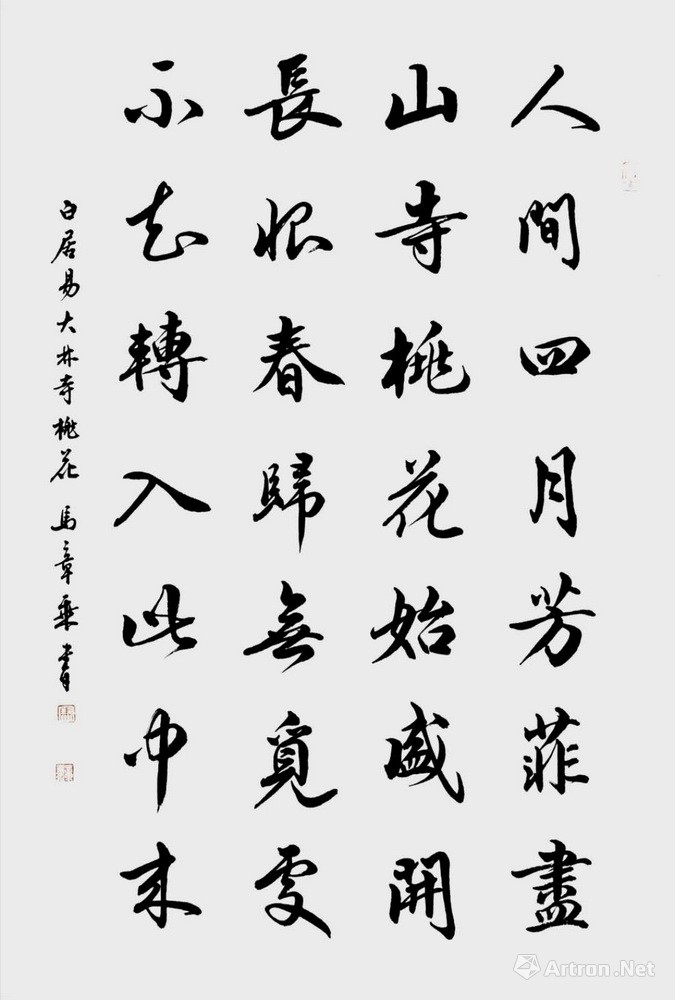 人間四月芳菲盡
山寺桃花始盛開
長恨春歸無覓處
不知轉入此中來
白居易大林寺桃花 馬章乗書
Artron.Net